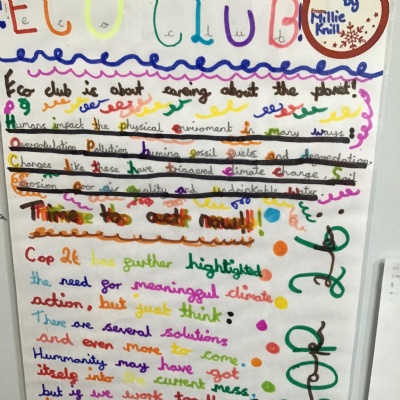 ECO CLUB!
e c o c l u b
by
Millie
Knill
Eco club is about caring about the planet!
Humans impact the physical enviroment in many ways:
Overpopulation, Pollution, burning fossil fuels and
Changes like these have triggered climate change, Soil
erosion, poor air quality and undrinkable water.
Time to act now!!!
Cop 26 has further highlighted
the need for meaningful climate
action, but just think:
There are several solutions
and even more to come.
Hummanity may have got
itself into the current mess,
but if we work